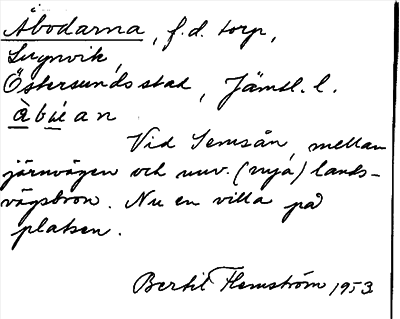 Åbodarna, f.d. torp,
Lugnvik,
Östersunds stad, Jämtl. l.
àbúan
Vid Semsån, mellan
järnvägen och nuv. (nya) lands-
vägsbron. Nu en villa på
platsen.
Bertil Flemström 1953